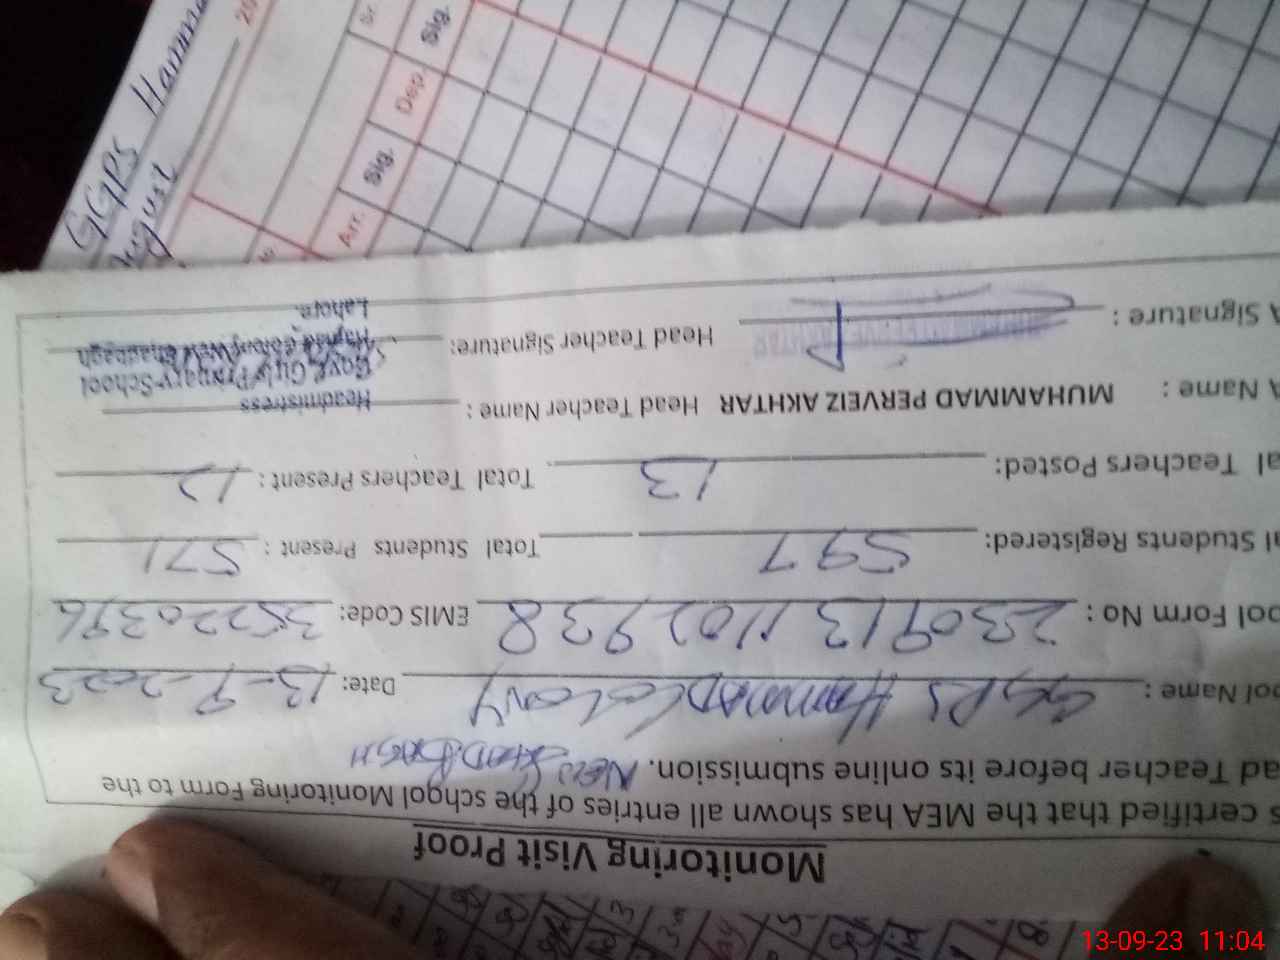 Monitoring Visit Proof
certified that the MEA has shown all entries of the school Monitoring Form to the
ad Teacher before its online submission. New
ool Name : GGPS Hammad Colony Date: 13-9-2023
ool Form No : 230913 1102938 EMIS Code: 35220396
al Students Registered: 597 Total Students Present : 571
al Teachers Posted: 13 Total Teachers Present : 12
A Name : MUHAMMAD PERVEIZ AKHTAR Head Teacher Name : Headmistress
Govt. Girls Primary School
A Signature : Head Teacher Signature: Hamad Colony New Chahbagh
Lahore.
GGPS Hamma
August
20
Sr.
Arr. Sig. Dep Sig.
13-09-23 11:04